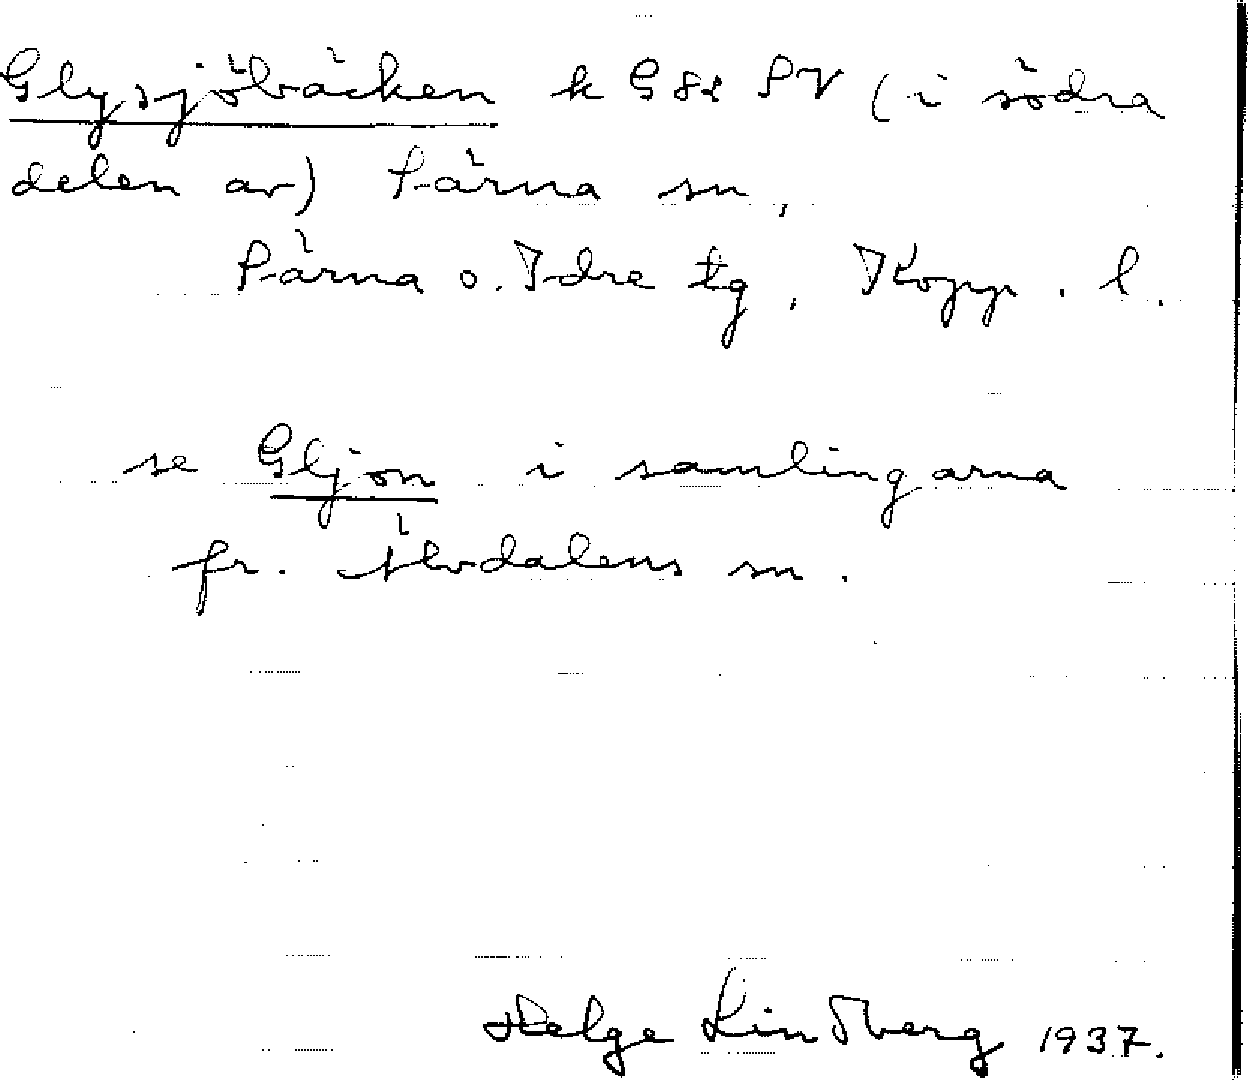 Glysjöbäcken k G82 SV (i södra
delen av) Särna sn,
Särna o. Idre tg, Kopp. l.
se Gljön i samlingarna
fr. Älvdalens sn.
Helge Lindberg 1937.